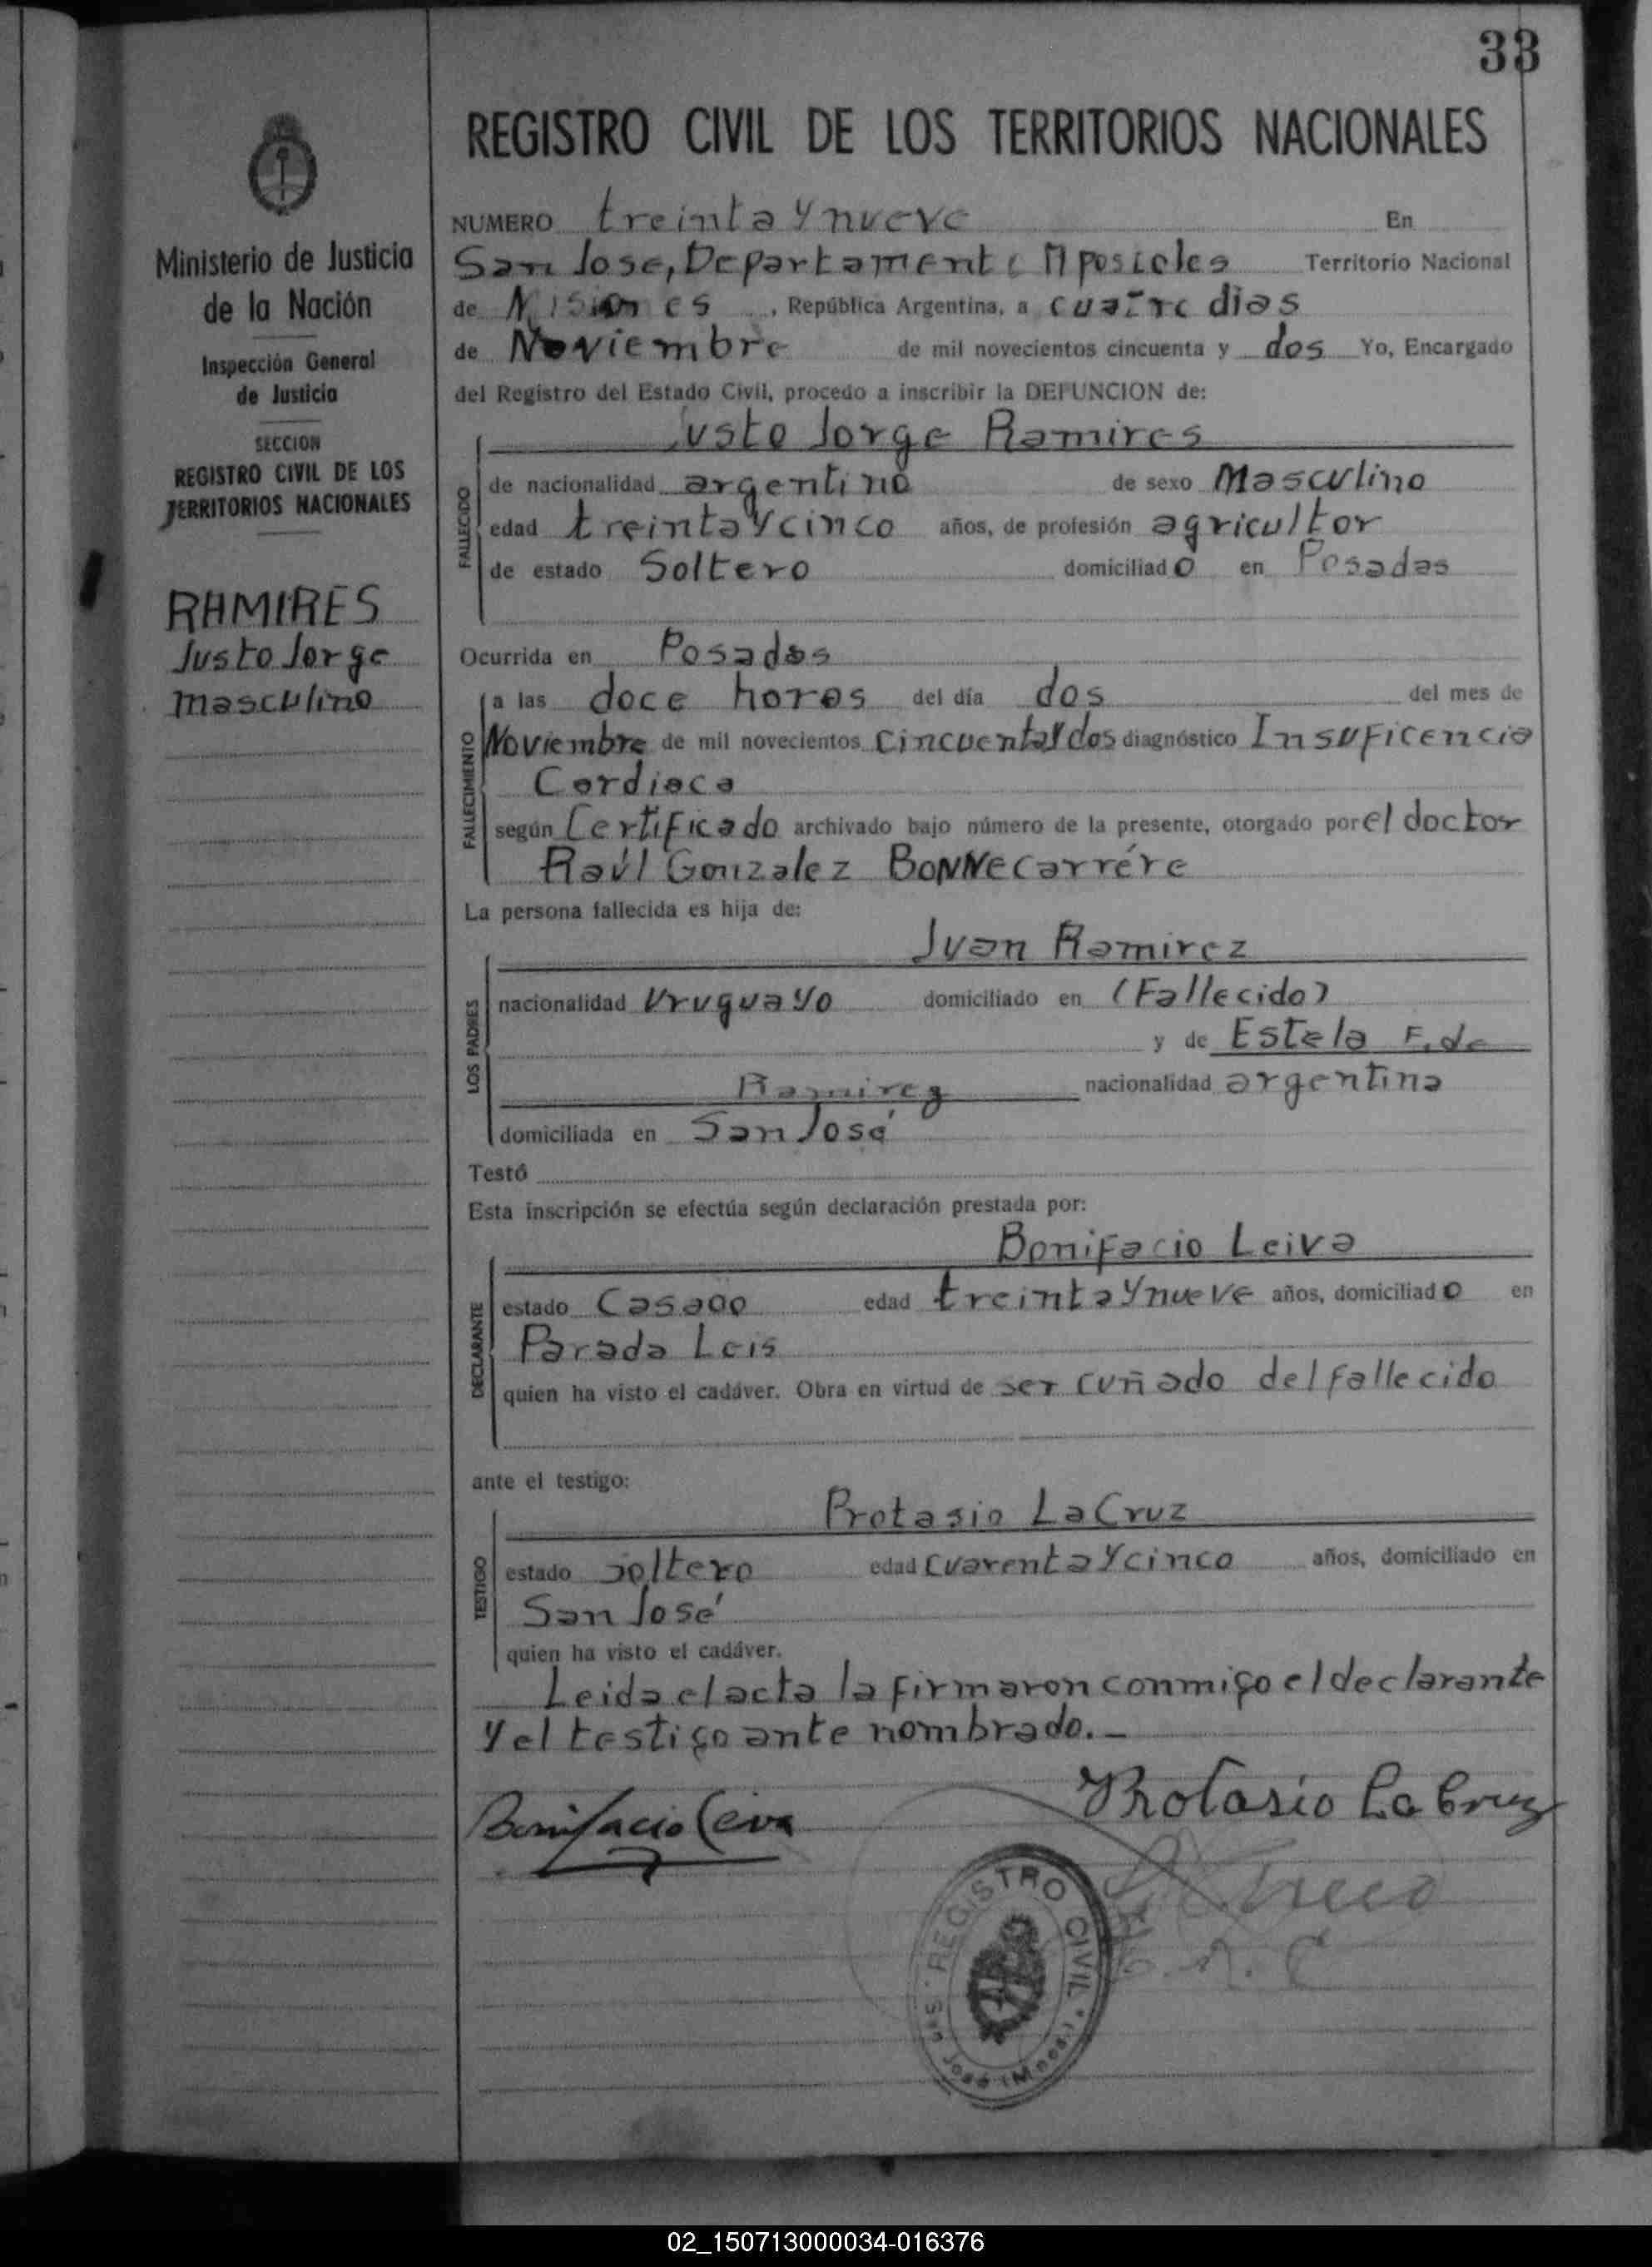 33
REGISTRO CIVIL DE LOS TERRITORIOS NACIONALES
Ministerio de Justicia
de la Nación
Inspección General
de Justicia
SECCION
REGISTRO CIVIL DE LOS
TERRITORIOS NACIONALES
RAMIRES
Justo Jorge
masculino
NUMERO treinta y nueve En
San Jose, Departamento Aposteles Territorio Nacional
de Misiones, República Argentina, a cuatro dias
de Noviembre de mil novecientos cincuenta y dos Yo, Encargado
del Registro del Estado Civil, procedo a inscribir la DEFUNCION de:
Justo Jorge Ramires
FALLECIDO
de nacionalidad argentino de sexo Masculino
edad treinta y cinco años, de profesión agricultor
de estado Soltero domiciliado en Posadas
Ocurrida en Posadas
FALLECIMIENTO
a las doce horas del día dos del mes de
Noviembre de mil novecientos cincuenta y dos diagnóstico Insuficencia
Cardiaca
según Certificado archivado bajo número de la presente, otorgado por el doctor
Raúl Gonzalez Bonnecarrére
La persona fallecida es hija de:
LOS PADRES
Juan Ramirez
nacionalidad Uruguayo domiciliado en (Fallecido)
y de Estela F. de
Ramirez nacionalidad argentina
domiciliada en San José
Testó
Esta inscripción se efectúa según declaración prestada por:
DECLARANTE
Bonifacio Leiva
estado Casado edad treinta y nueve años, domiciliado en
Parada Leis
quien ha visto el cadáver. Obra en virtud de ser cuñado del fallecido
ante el testigo:
TESTIGO
Protasio La Cruz
estado soltero edad cuarenta y cinco años, domiciliado en
San José
quien ha visto el cadáver.
Leida el acta la firmaron conmigo el declarante
y el testigo ante nombrado.-
Bonifacio Leiva
Protasio La Cruz
REGISTRO CIVIL
San José (Mnes.)
02_150713000034-016376